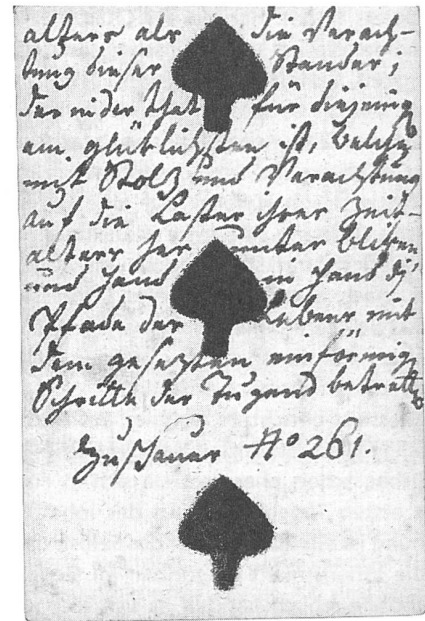 alters als die Verach-
tung dieses Standes;
der in der That für diejenig
am glüklichsten ist, welche
mit Stolz und Verachtung
auf die Laster ihres Zeit-
alters herunter bliken
und Hand in Hand di
Pfade des Lebens mit
dem gesetzten einförmig
Schritte der Tugend betrette
Zuschauer No 261.